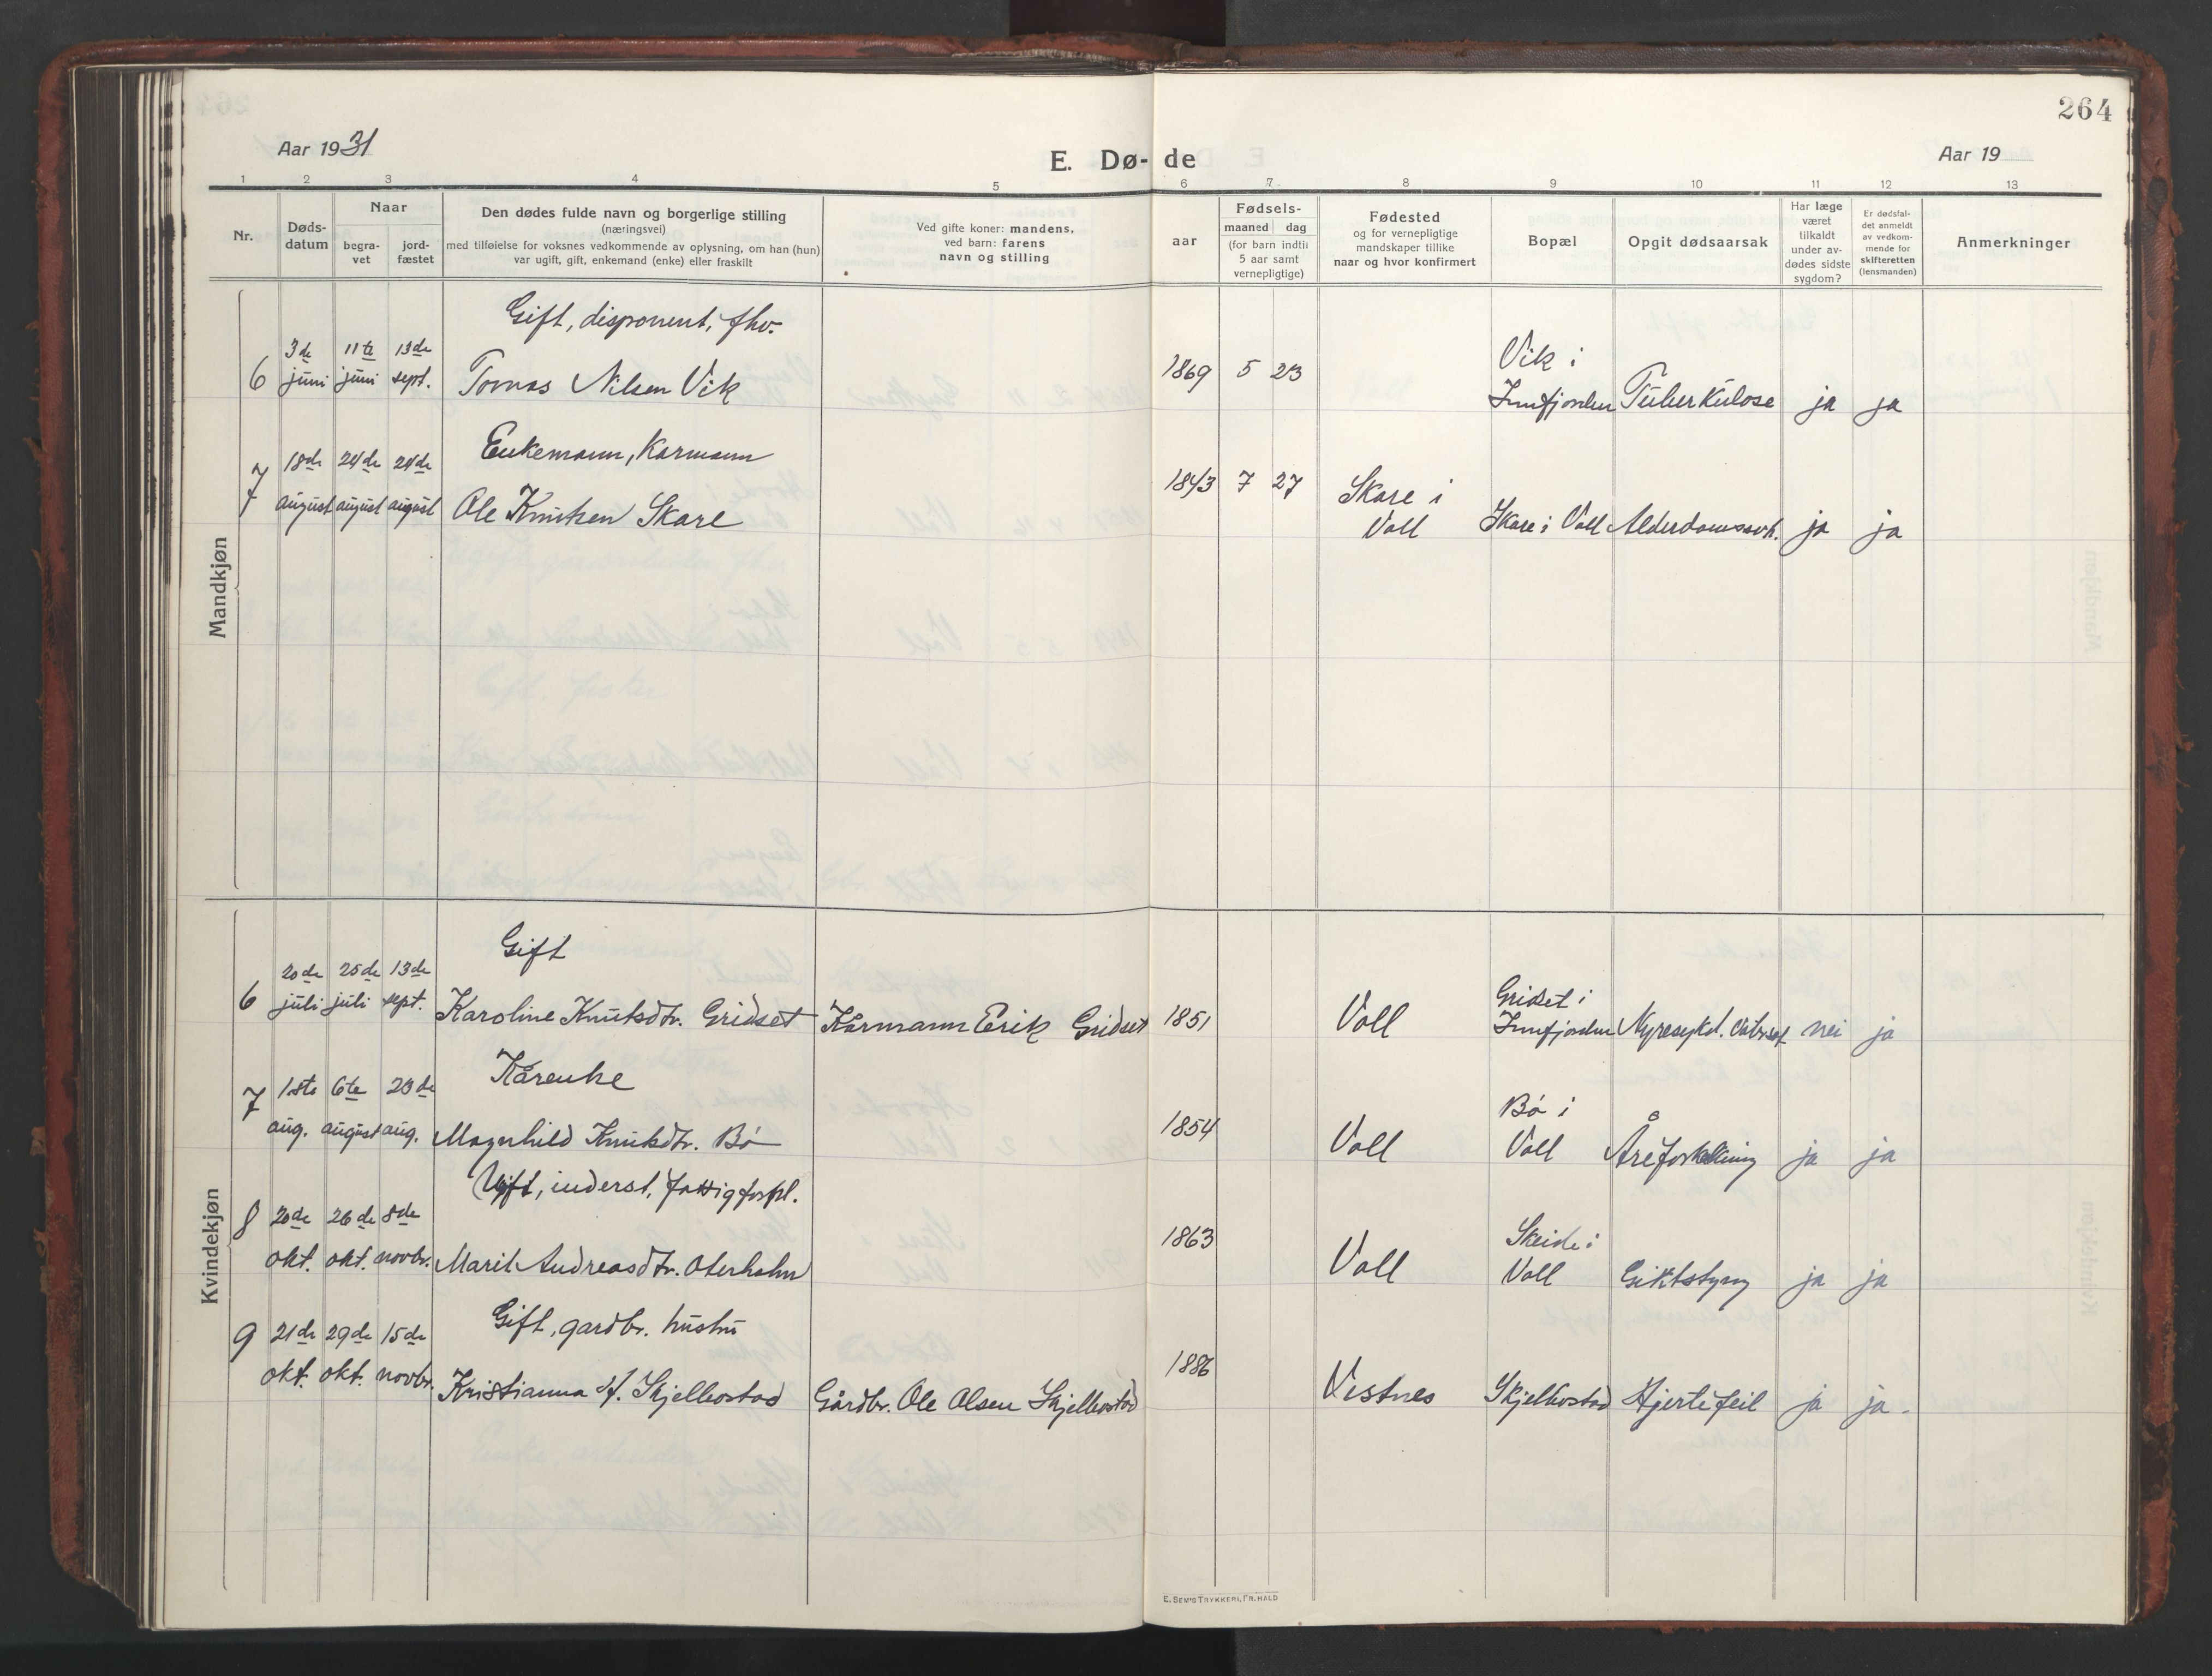 264
Aar 1931
E. Dø- de
Aar 19
1 2 3 4 5 6 7 8 9 10 11 12 13
Nr.
Døds-
datum
Naar
begra-
vet
jord-
fæstet
Den dødes fulde navn og borgerlige stilling
(næringsvei)
med tilføielse for voksnes vedkommende av oplysning, om han (hun)
var ugift, gift, enkemand (enke) eller fraskilt
Ved gifte koner: mandens,
ved barn: farens
navn og stilling
aar
Fødsels-
maaned dag
(for barn indtil
5 aar samt
vernepligtige)
Fødested
og for vernepligtige
mandskaper tillike
naar og hvor konfirmert
Bopæl
Opgit dødsaarsak
Har læge
været
tilkaldt
under av-
dødes sidste
sygdom?
Er dødsfal-
det anmeldt
av vedkom-
mende for
skifteretten
(lensmanden)
Anmerkninger
Mandkjøn
Gift, disponent, fhv.
6 3de juni 11te juni 13de sept. Tomas Nilsen Vik 1869 5 23 Vik i Innfjorden Tuberkulose ja ja
Enkemann, Karmann
7 18de august 24de august 24de august Ole Knutsen Skare 1843 7 27 Skare i Voll Skare i Voll Alderdomssvk. ja ja
Kvindekjøn
Gift
6 20de juli 25de juli 13de sept. Karoline Knutsdtr. Gridset Kårmann Erik Gridset 1851 Voll Gridset i Innfjorden Nyresykd. nei ja
Kårenke
7 1ste aug. 6te august 23de aug. Magnhild Knutsdtr. Bø 1854 Voll Bø i Voll Åreforkalkning ja ja
Ugift, inderst, fattigforpl.
8 20de okt. 26de okt. 8de novbr. Marit Andreasdtr. Oterholm 1863 Voll Skeide i Voll Giktstyng ja ja
Gift, gardbr. hustru
9 21de okt. 29de okt. 15de novbr. Kristianna Skjelbostad Gårdbr. Ole Olsen Skjelbostad 1886 Vestnes Skjelbostad Hjertefeil ja ja.
E. SEM'S TRYKKERI, FR. HALD